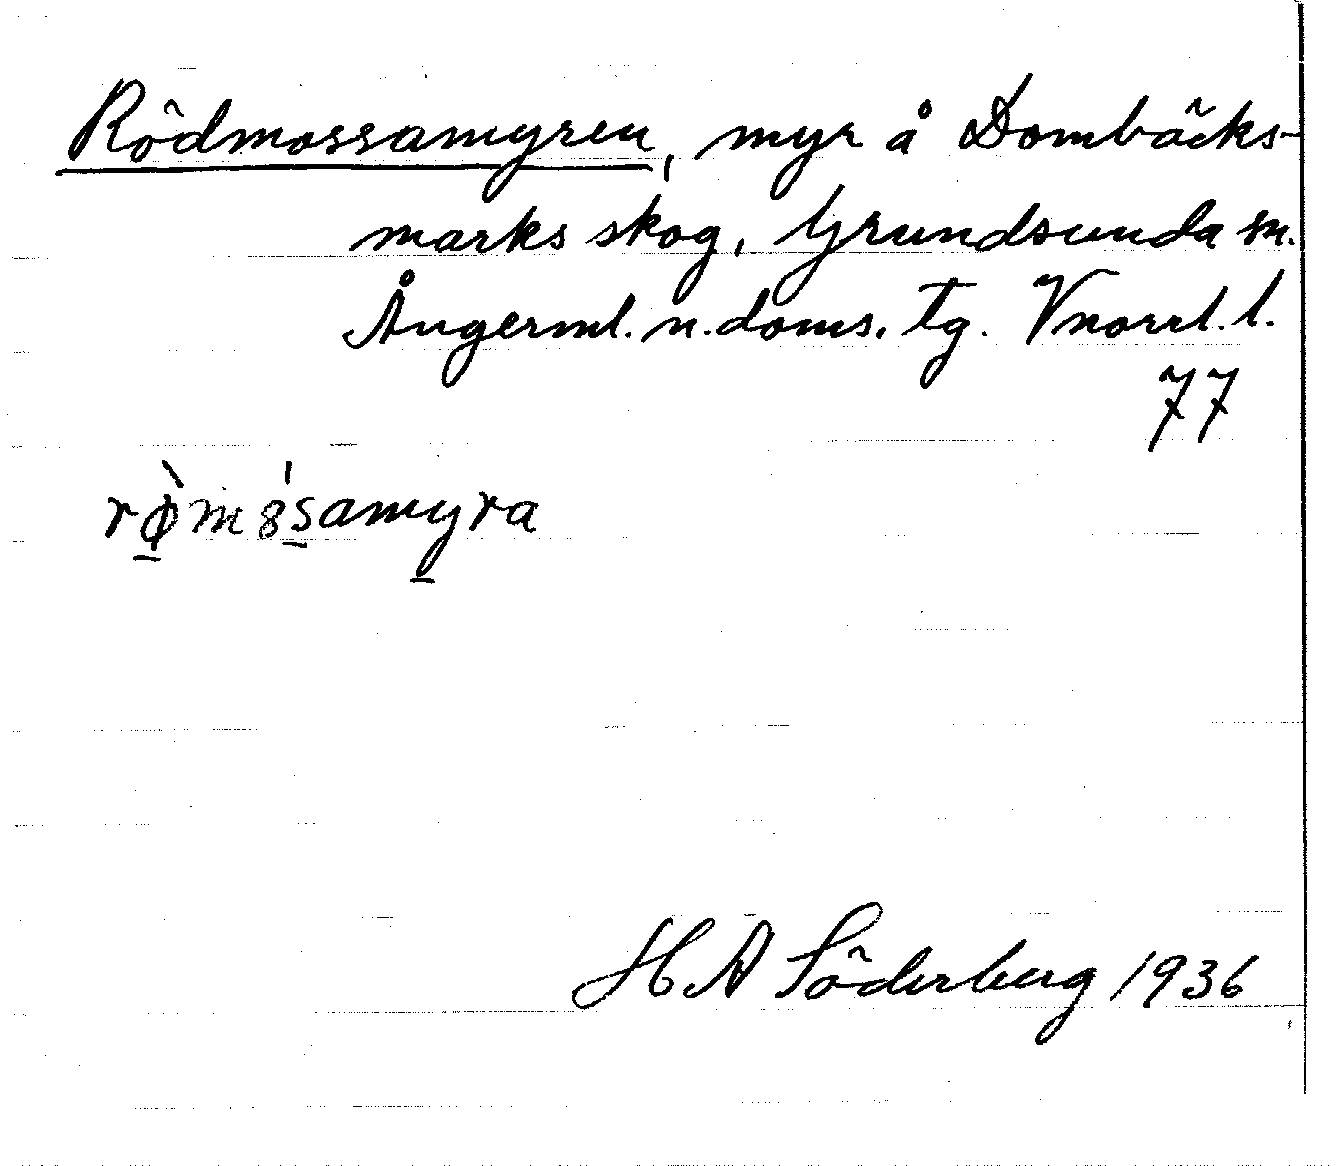 Rödmossamyren, myr å Dombäcks-
marks skog, Grundsunda sn.
Ångerml. n. doms. tg. Vnorrl. l.
77
rø̀m8́samyra
H A Söderberg 1936